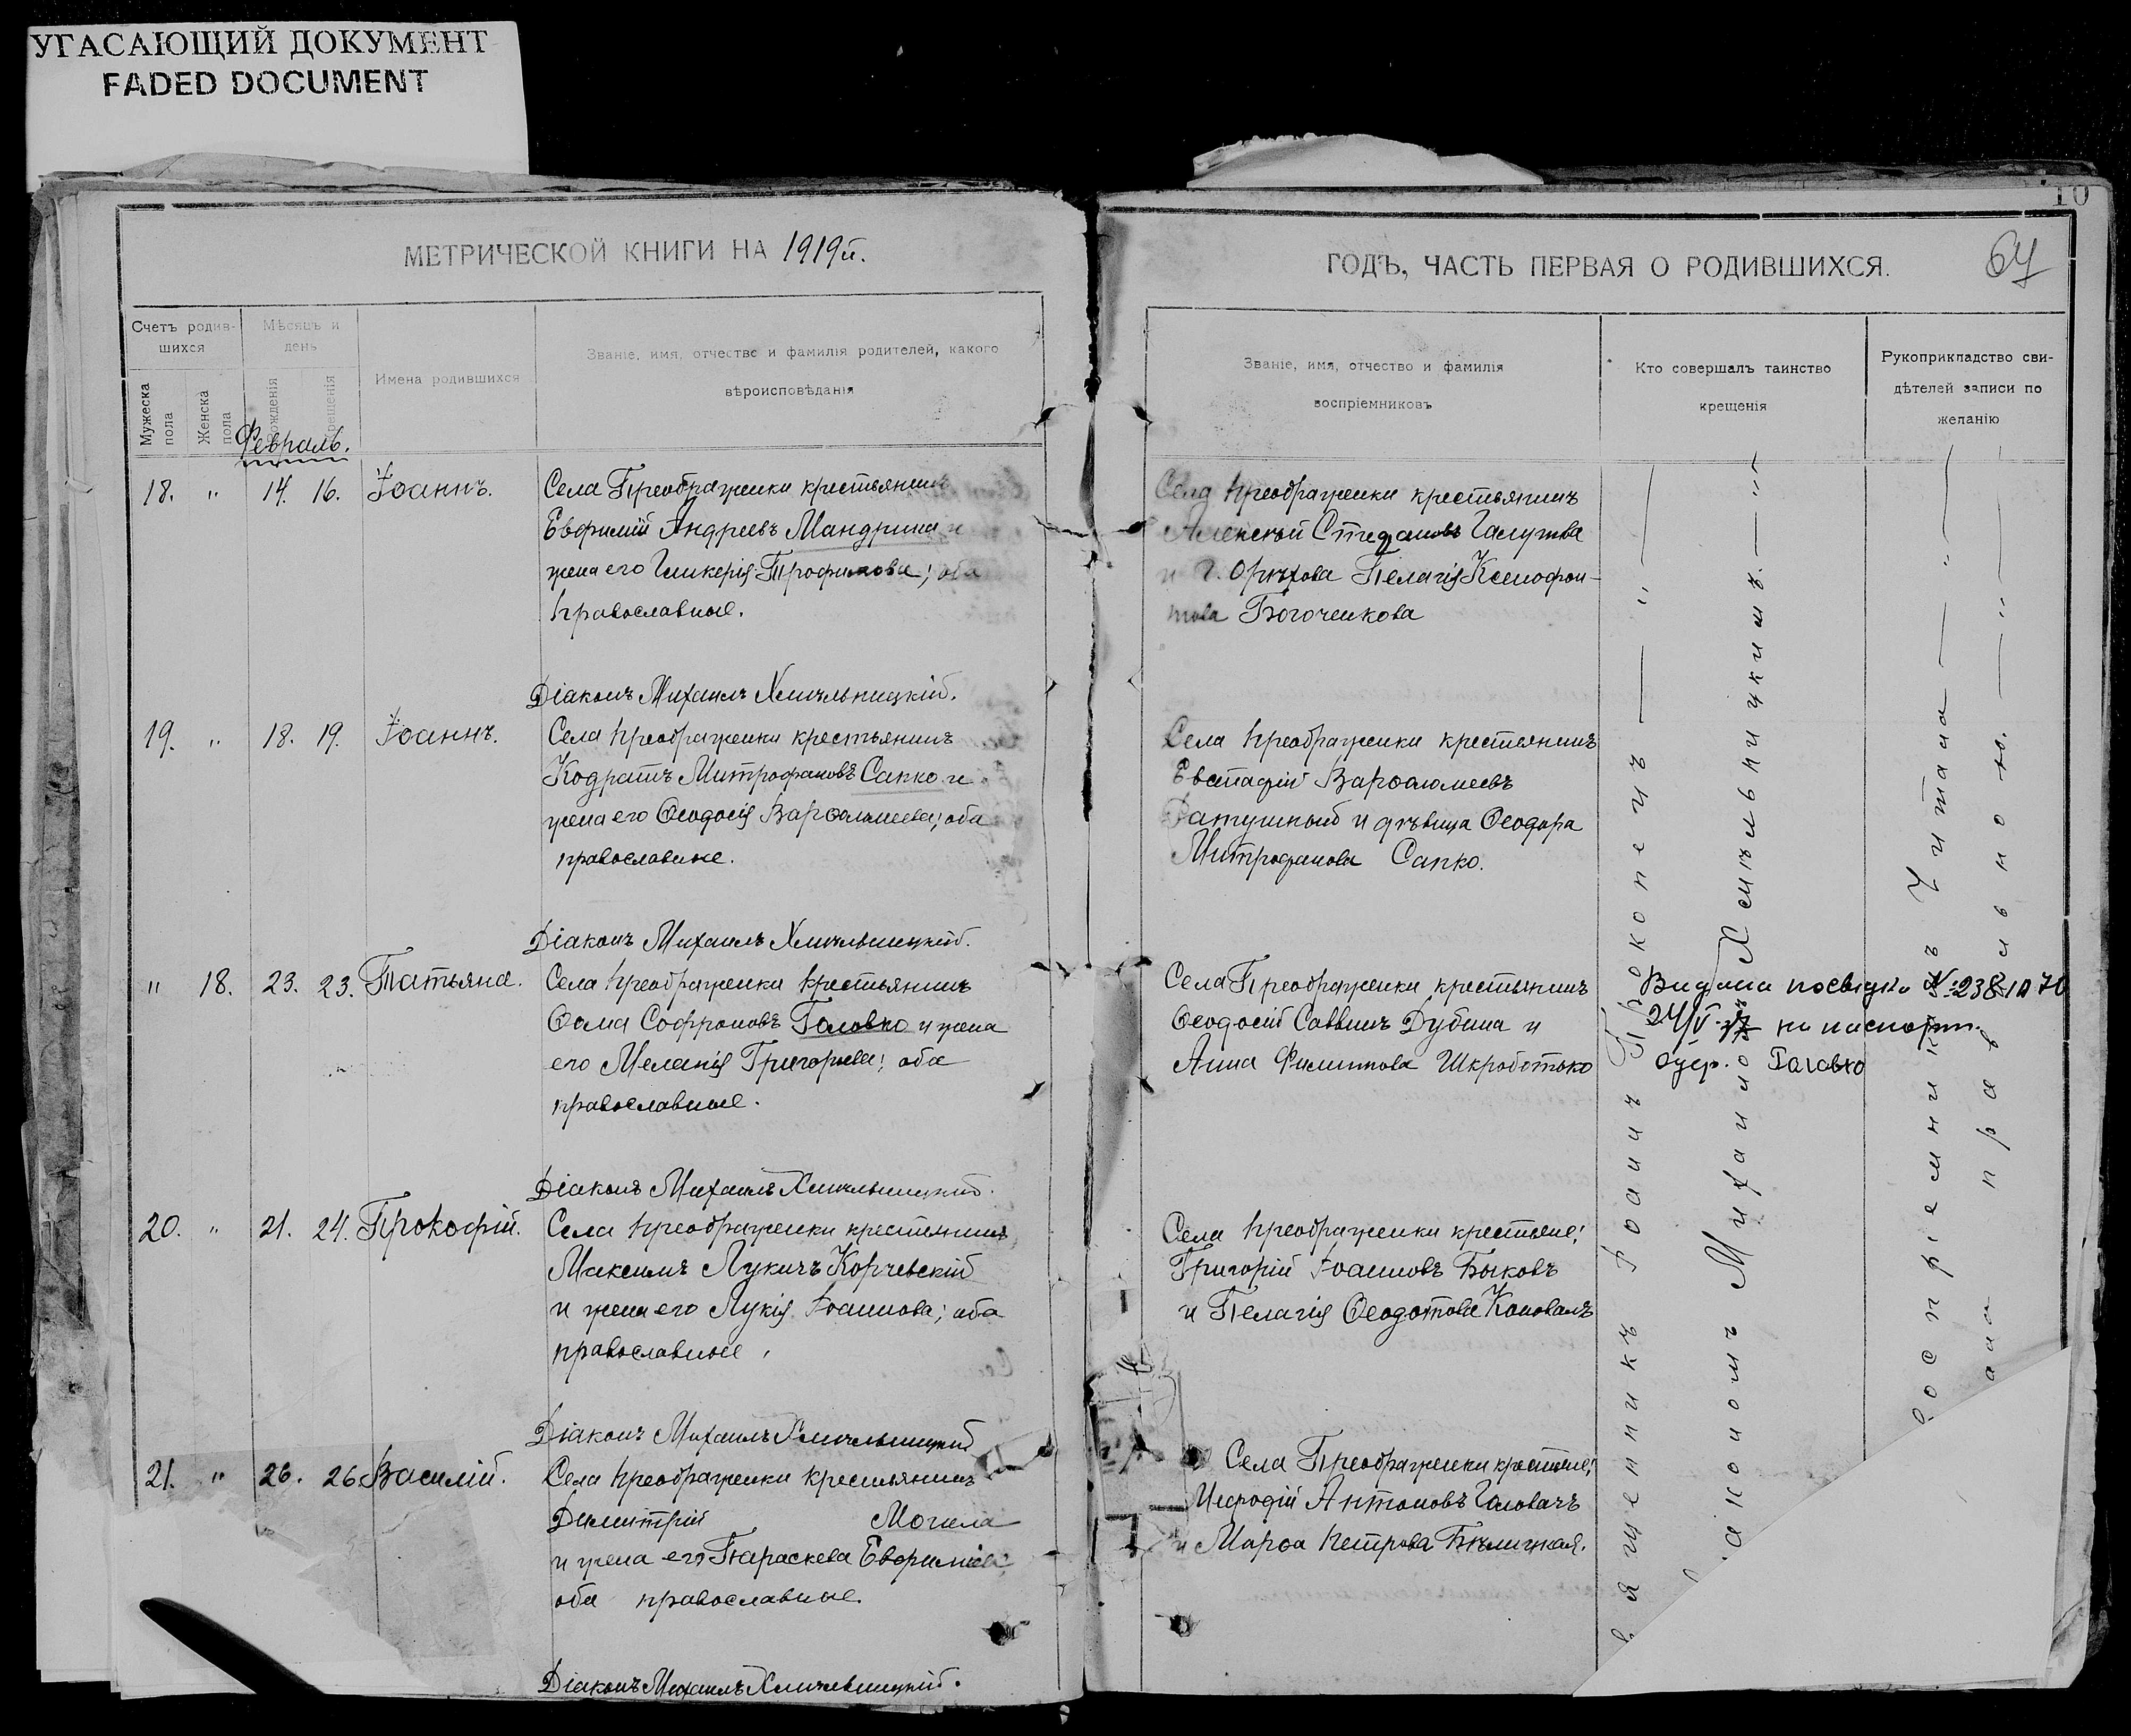 УГАСАЮЩИЙ ДОКУМЕНТ
FADED DOCUMENT
МЕТРИЧЕСКОЙ КНИГИ НА 1919й.
Счетъ родив-
шихся
Мѣсяцъ и
день
Мужеска
пола
Женска
пола
рожденія
крещенія
Имена родившихся
Званіе, имя, отчество и фамилія родителей, какого
вѣроисповѣданія
Февраль.
18. " 14. 16. Іоаннъ.
Села Преображенки крестьянинъ
Евфимій Андреевъ Мандрика и
жена его Гликерія Трофимова; оба
православные.
Діаконъ Михаилъ Хмѣльницкій.
19. " 18. 19. Іоаннъ.
Села Преображенки крестьянинъ
Кодратъ Митрофановъ Сапко и
жена его Ѳеодосія Варѳоломеева; оба
православные.
Діаконъ Михаилъ Хмѣльницкій.
" 18. 23. 23. Татьяна.
Села Преображенки крестьянинъ
Ѳома Софроновъ Головко и жена
его Меланія Григорьева; оба
православные.
Діаконъ Михаилъ Хмѣльницкій.
20. " 21. 24. Прокофій.
Села Преображенки крестьянинъ
Максимъ Лукичъ Корчевскій
и жена его Лукія Іоаннова; оба
православные,
Діаконъ Михаилъ Хмѣльницкій
21. " 26. 26. Василій.
Села Преображенки крестьянинъ
Димитрій Могила
и жена его Параскева Евфиміева
оба православные.
Діаконъ Михаилъ Хмѣльницкій.
10
64
ГОДЪ, ЧАСТЬ ПЕРВАЯ О РОДИВШИХСЯ.
Званіе, имя, отчество и фамилія
воспріемниковъ
Кто совершалъ таинство
крещенія
Рукоприкладство сви-
дѣтелей записи по
желанію
Села Преображенки крестьянинъ
Алексѣй Стефановъ Галушка
и г. Орѣхова Пелагія Ксенофон-
това Богоченкова
Села Преображенки крестьянинъ
Евстафій Варѳоломеевъ
Ратушный и дѣвица Ѳеодора
Митрофанова Сапко.
Села Преображенки крестьянинъ
Ѳеодосій Саввинъ Дубина и
Анна Филиппова Шкроботько
Села Преображенки крестьяне:
Григорій Іоанновъ Быковъ
и Пелагія Ѳеодотова Коновалъ
Села Преображенки крестьяне:
Меѳодій Антоновъ Головачъ
и Марѳа Петрова Бѣлицкая.
вященникъ Іоаннъ Прокопецъ — " —
акономъ Михаиломъ Хмѣльницкимъ. — " —
Воспріемникъ Читана — " —
ана правильною. — " —
Видана посвідка №
24/V на паспорт.
Головко